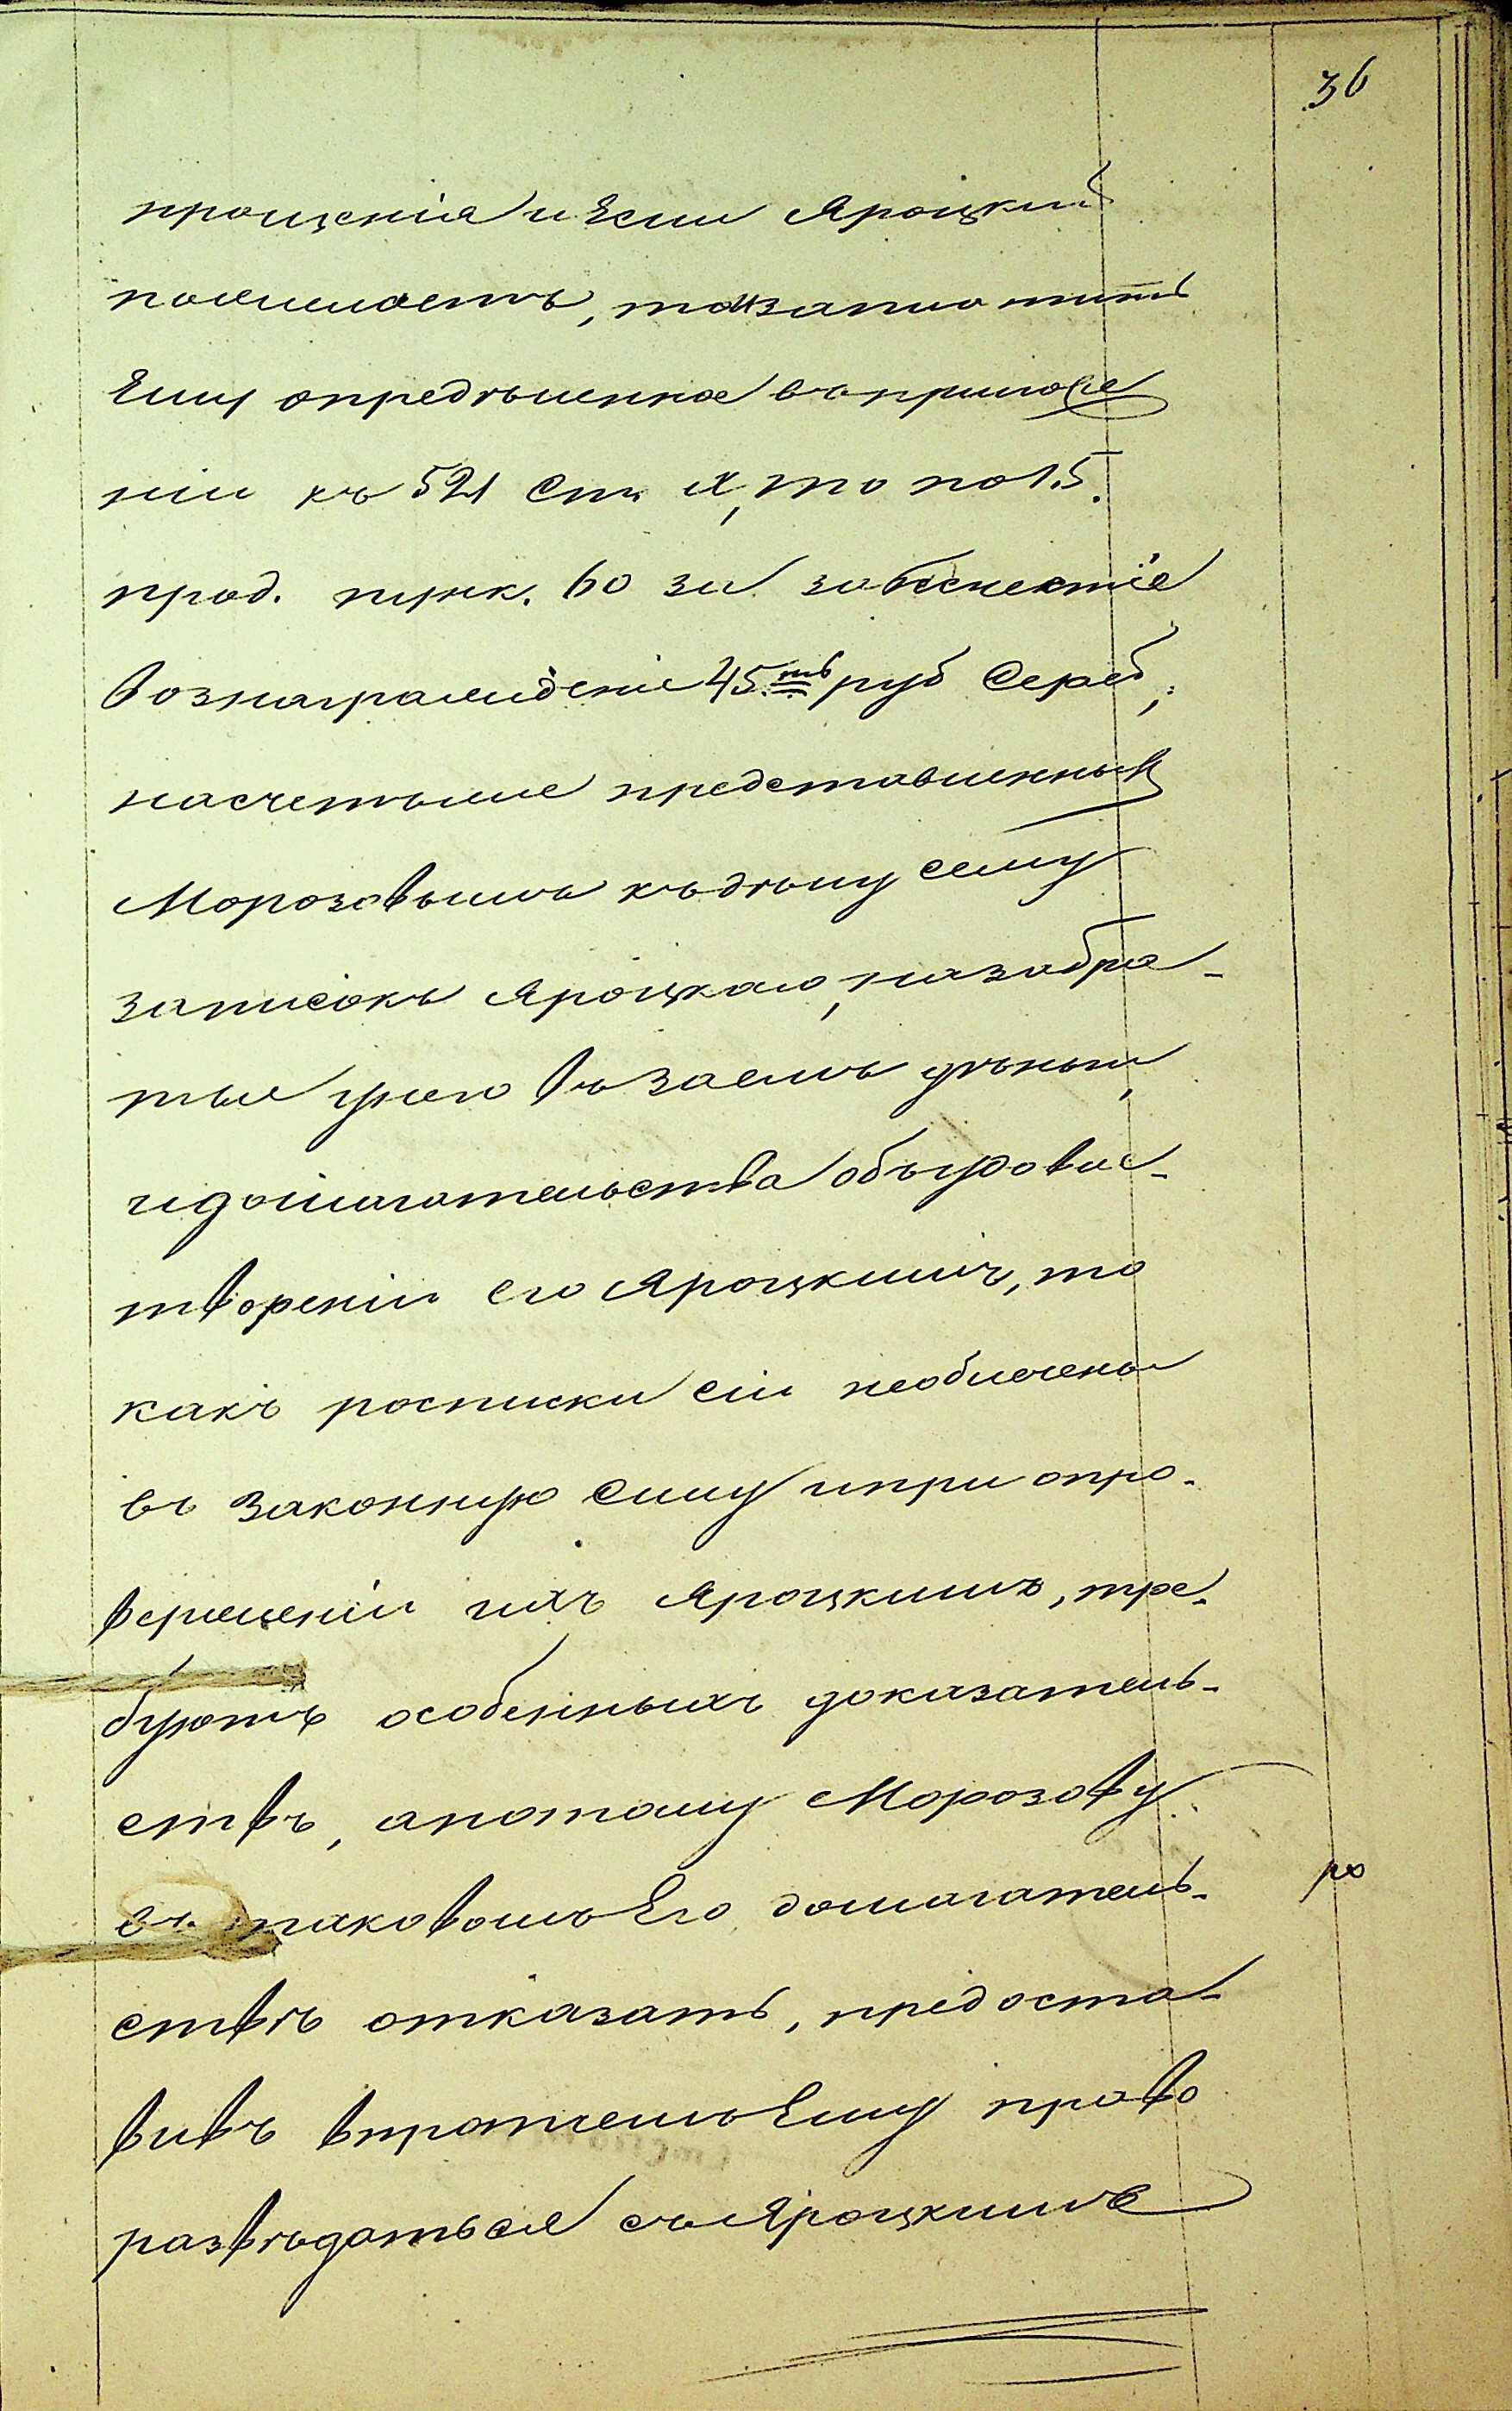 36
прощенія и Если Яроцкій
пожелаетъ, то взаплатить
Ему опредѣленное въ приложе
ніи къ 521 Ст. IX, то по 15.
прод. пунк. 60 за за безчестіе
вознагражденіе 45.ть руб Сереб,;
насчетъже представленныхъ
Морозовымъ къ дѣлу сему
записокъ Яроцкаго, на забра-
тыя унего въ Заемъ деньги,
и домогательства объ удовле-
твореніи его Яроцкимъ, то
какъ росписки сіи необлечены
въ Законную Силу и при опро-
верженіи ихъ Яроцкимъ, тре-
буютъ особенныхъ доказатель-
ствъ, апотому Морозову
въ таковомъ Его домогатель-
ствѣ отказать, предоста-
вивъ впротчемъ Ему право
развѣдаться съ Яроцкимъ